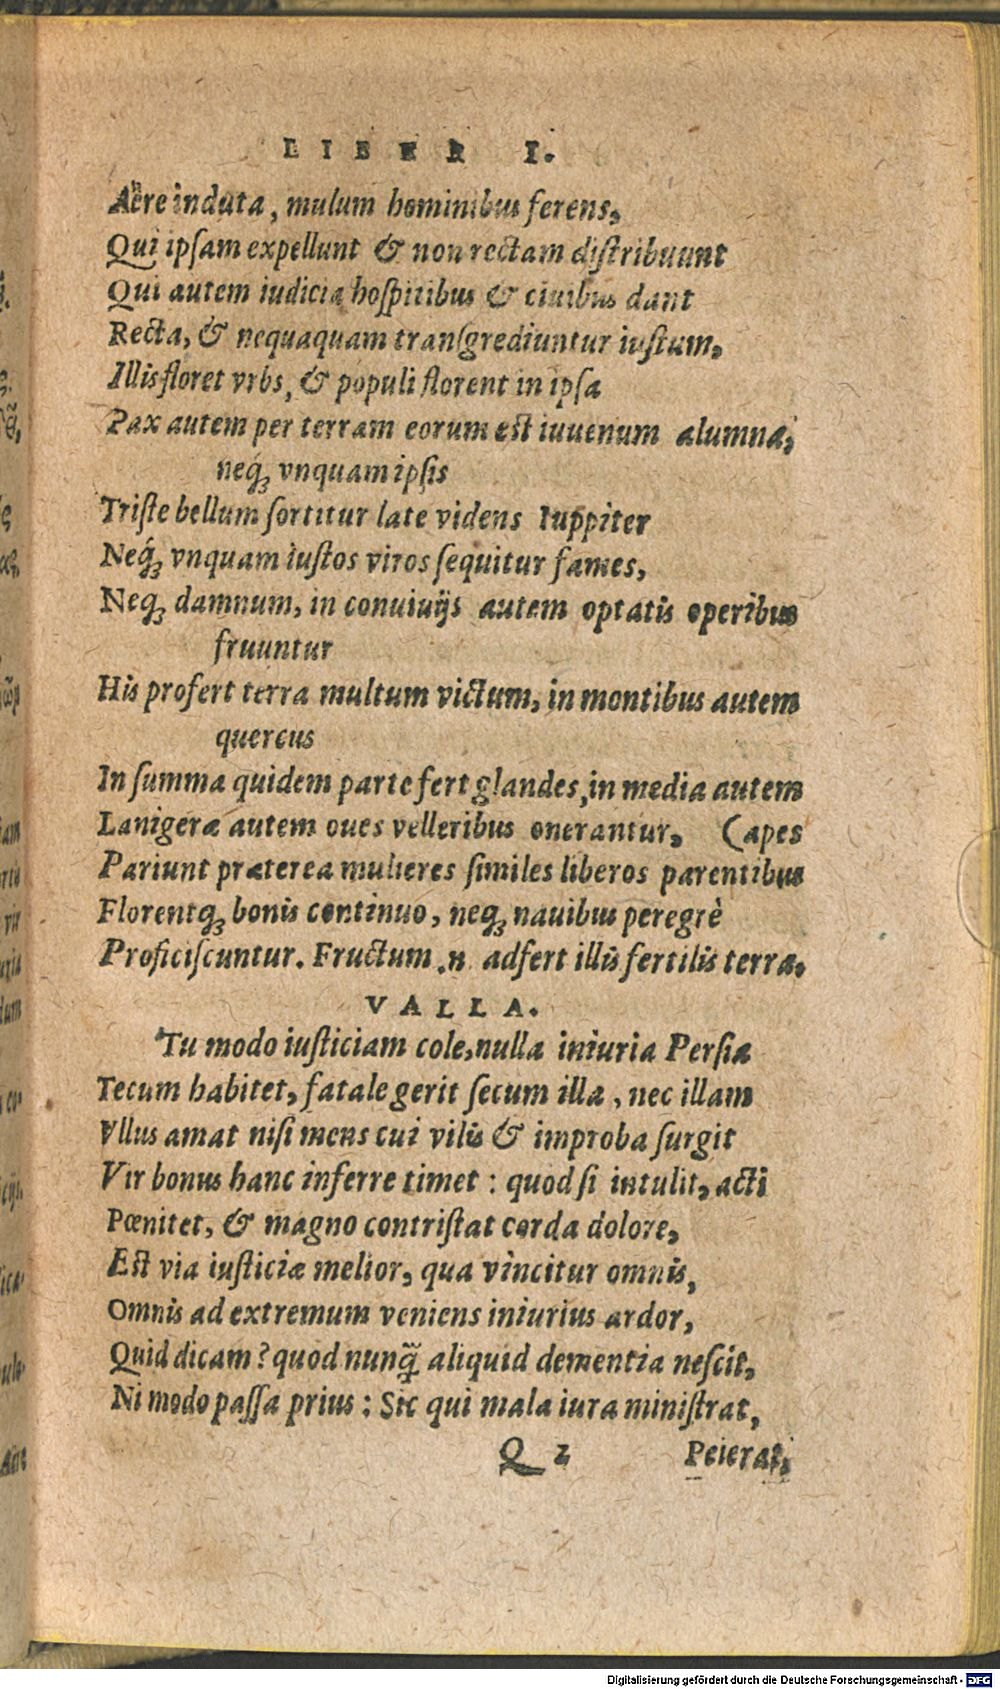 LIBER I.
Aëre induta, mulum hominibus ferens,
Qui ipſam expellunt & non rectam diſtribuunt
Qui autem iudicia hoſpitibus & ciuibus dant
Recta, & nequaquam tranſgrediuntur iuſtum,
Illis floret vrbs, & populi florent in ipſa
Pax autem per terram eorum est iuuenum alumna,
neq́; vnquam ipſis
Triſte bellum ſortitur late videns Iuppiter
Neq́; vnquam iuſtos viros ſequitur fames,
Neq; damnum, in conuiuijs autem optatis operibus
fruuntur
His profert terra multum victum, in montibus autem
quercus
In ſumma quidem parte fert glandes, in media autem
Lanigeræ autem oues velleribus onerantur, (apes
Pariunt præterea mulieres ſimiles liberos parentibus
Florentq; bonis continuo, neq; nauibus peregrè
Proficiſcuntur. Fructum .n. adfert illis fertilis terra.
VALLA.
Tu modo iuſticiam cole, nulla iniuria Perſia
Tecum habitet, fatale gerit ſecum illa, nec illam
Vllus amat niſi mens cui vilis & improba ſurgit
Vir bonus hanc inferre timet: quod ſi intulit, acti
Pœnitet, & magno contriſtat corda dolore,
Est via iuſticiæ melior, qua vincitur omnis,
Omnis ad extremum veniens iniurius ardor,
Quid dicam? quod nunq̃ aliquid dementia neſcit,
Ni modo paſſa prius: Sic qui mala iura miniſtrat,
Q 2 Peierat,
Digitalisierung gefördert durch die Deutsche Forschungsgemeinschaft - DFG